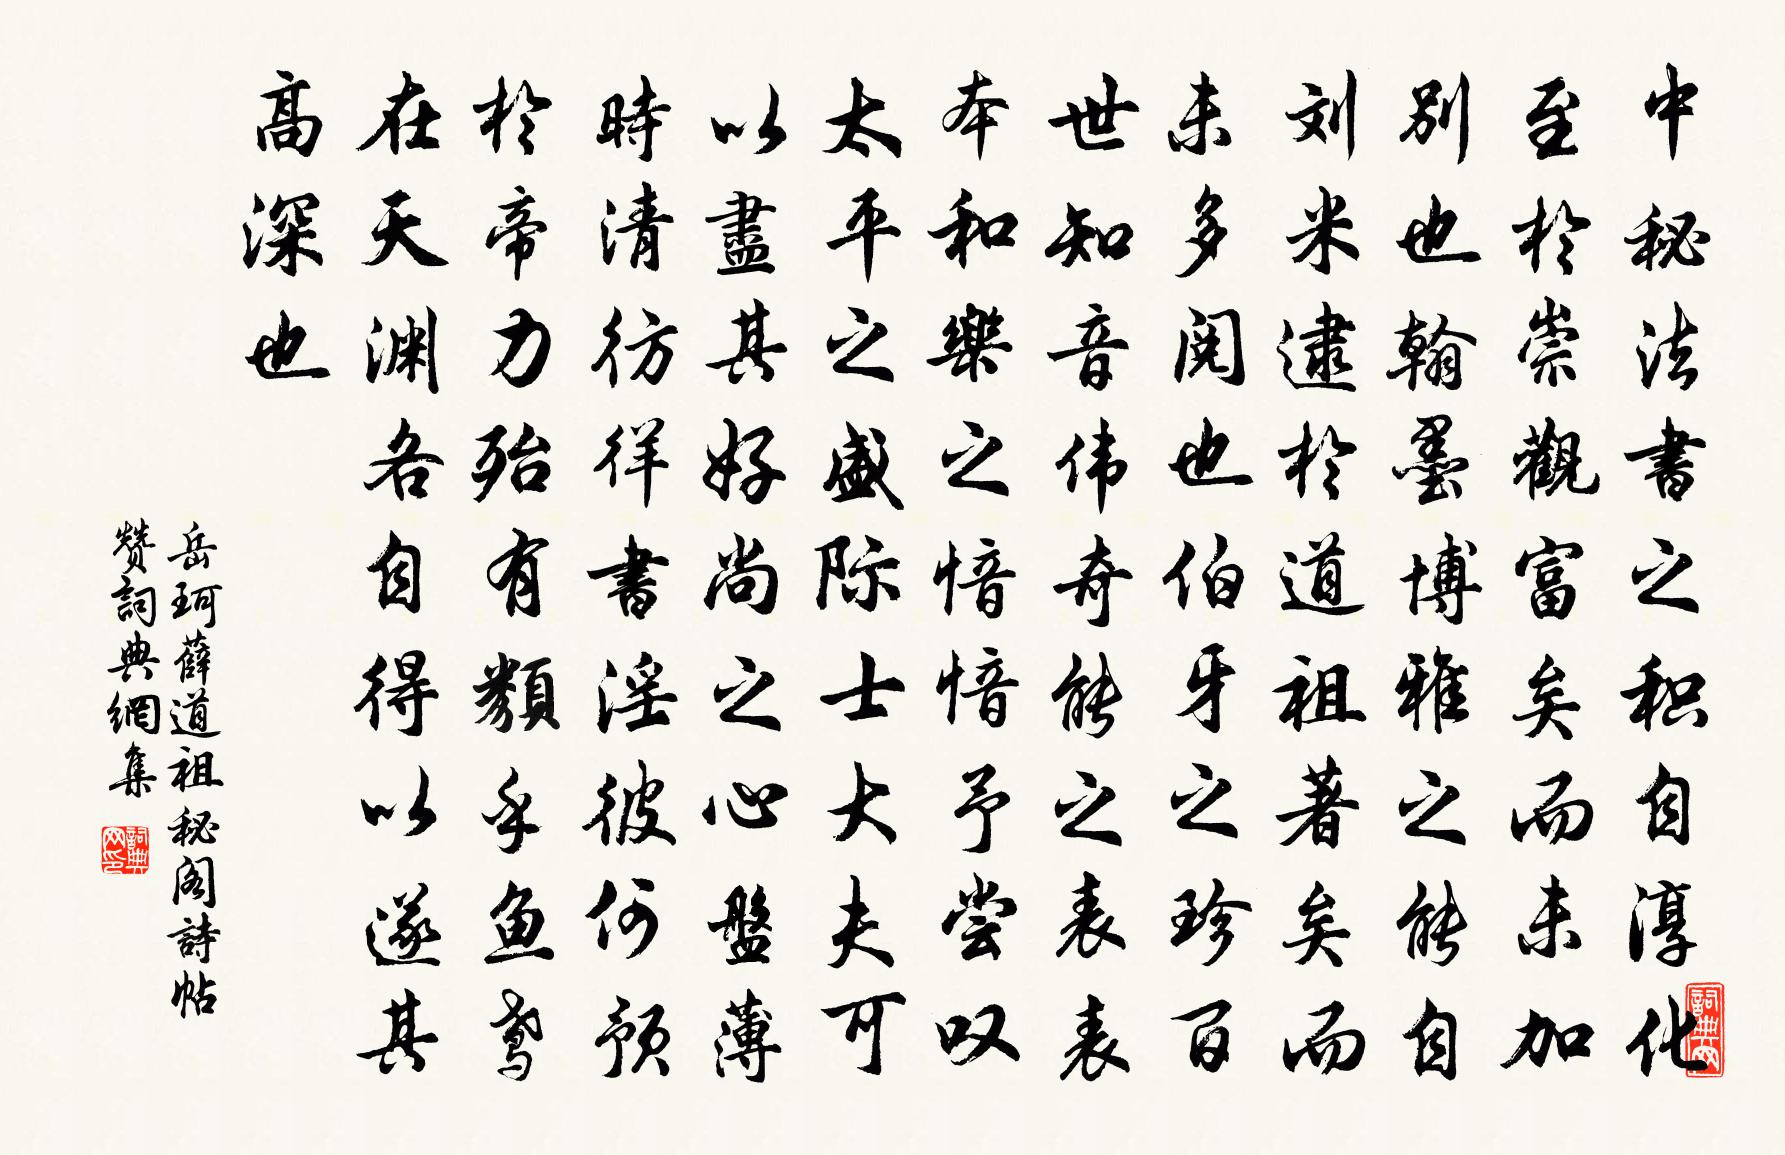 中秘法書之积自淳化
至於崇觀富矣而未加
别也翰墨博雅之能自
刘米逮於道祖著矣而
未多阅也伯牙之珍百
世知音伟奇能之表表
本和樂之愔愔予尝叹
太平之盛际士大夫可
以盡其好尚之心盤薄
時清彷徉書淫彼何预
於帝力殆有類乎鱼鸢
在天渊各自得以遂其
高深也
岳珂薛道祖秘阁詩帖
赞詞典網集
詞典网
詞典网印